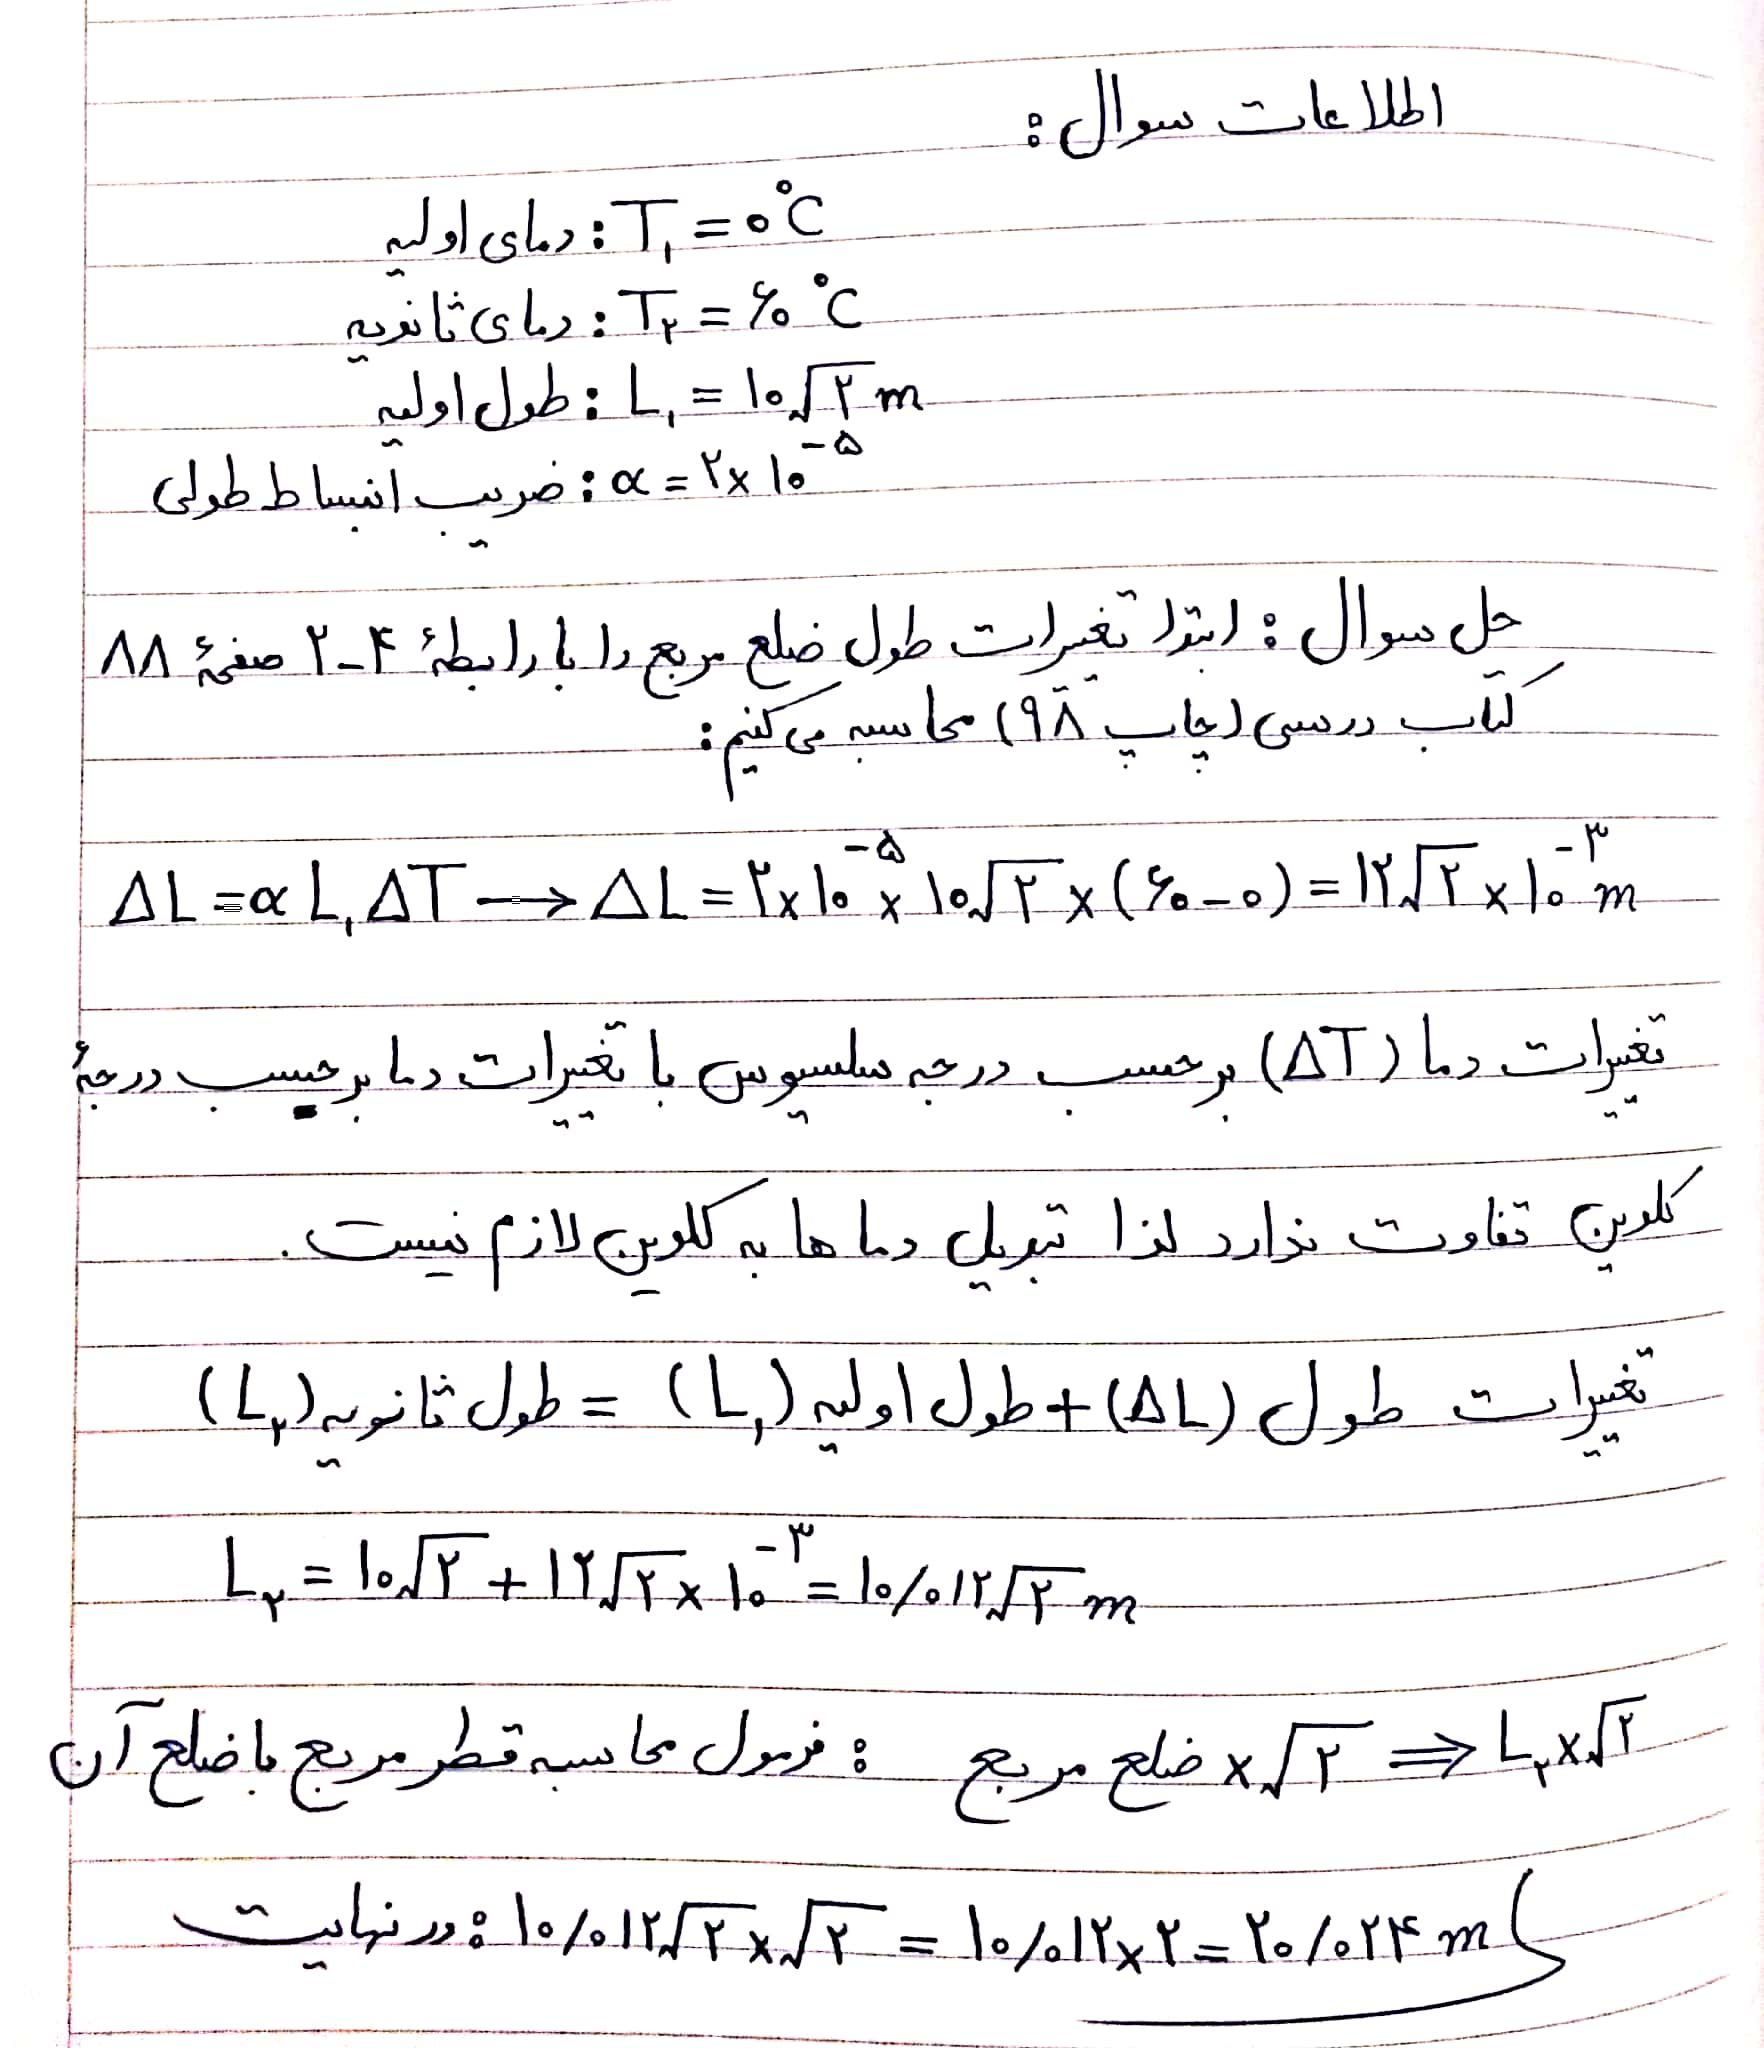 اطلاعات سوال:
دمای اولیه : T₁ = ۰°C
دمای ثانویه : T₂ = ۶۰°C
طول اولیه : L₁ = ۱۰√۲ m
ضریب انبساط طولی : α = ۲×۱۰⁻⁵
حل سوال : ابتدا تغییرات طول ضلع مربع را با رابطهٔ ۴-۲ صفحهٔ ۸۸
کتاب درسی (چاپ ۹۸) محاسبه می کنیم:
ΔL = α L₁ ΔT → ΔL = ۲×۱۰⁻⁵ × ۱۰√۲ × (۶۰-۰) = ۱۲√۲ × ۱۰⁻³ m
تغییرات دما (ΔT) برحسب درجه سلسیوس با تغییرات دما برحسب درجهٔ
کلوین تفاوت ندارد لذا تبدیل دما ها به کلوین لازم نیست.
تغییرات طول (ΔL) + طول اولیه (L₁) = طول ثانویه (L₂)
L₂ = ۱۰√۲ + ۱۲√۲ × ۱۰⁻³ = ۱۰/۰۱۲√۲ m
فرمول محاسبه قطر مربع با ضلع آن : ضلع مربع ×√۲ ⇒ L₂×√۲
در نهایت : ۱۰/۰۱۲√۲ × √۲ = ۱۰/۰۱۲×۲ = ۲۰/۰۲۴ m